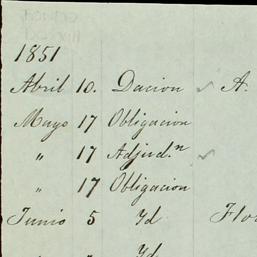 1851
Abril 10. Dacion ✓ A.
Mayo 17 Obligacion
" 17 Adjud.n ✓
" 17 Obligacion
Junio 5 Yd Flo
Yd